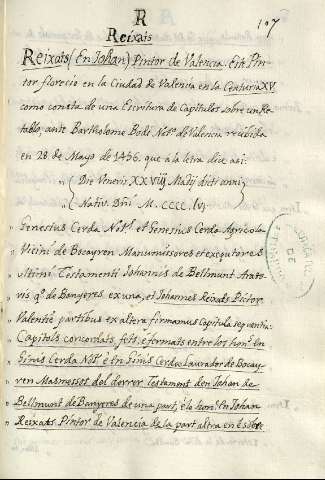 R
107
Reixats
Reixats (En Johan) Pintor de Valencia. Este Pin-
tor florecio en la Ciudad de Valencia en la Centuria XV.
como consta de una Escritura de Capitulos sobre un Re-
tablo, ante Bartholome Bodi Notº. de Valencia recibida
en 28. de Mayo de 1456. que à la letra dice asi:
" ( Die Veneris XXVIIJ Madij dicti anni
" ( Nativ. Dñi M. CCCC. lvj
" Genesius Cerda Notˢ. et Genesius Cerda Agricola
" Vicini de Bocayren Manumissores et exequtores
" ultimi Testamenti Johannis de Bellmunt Arato-
" ris qº. de Banyeres, ex una, et Johannes Rexats Pictor
" Valentie partibus ex altera firmamus Capitula sequentia.
" Capitols concordats, fets, è formats entre los honˢ. En
" Ginas Cerda Notˢ. è En Ginˢ Cerda Laurador de Bocay-
" ren Marmessos del derrer Testament den Johan de
" Bellmunt de Banyeres de una part, è lo honˢ. En Johan
" Reixats Pintor de Valencia de la part altra en è sobre